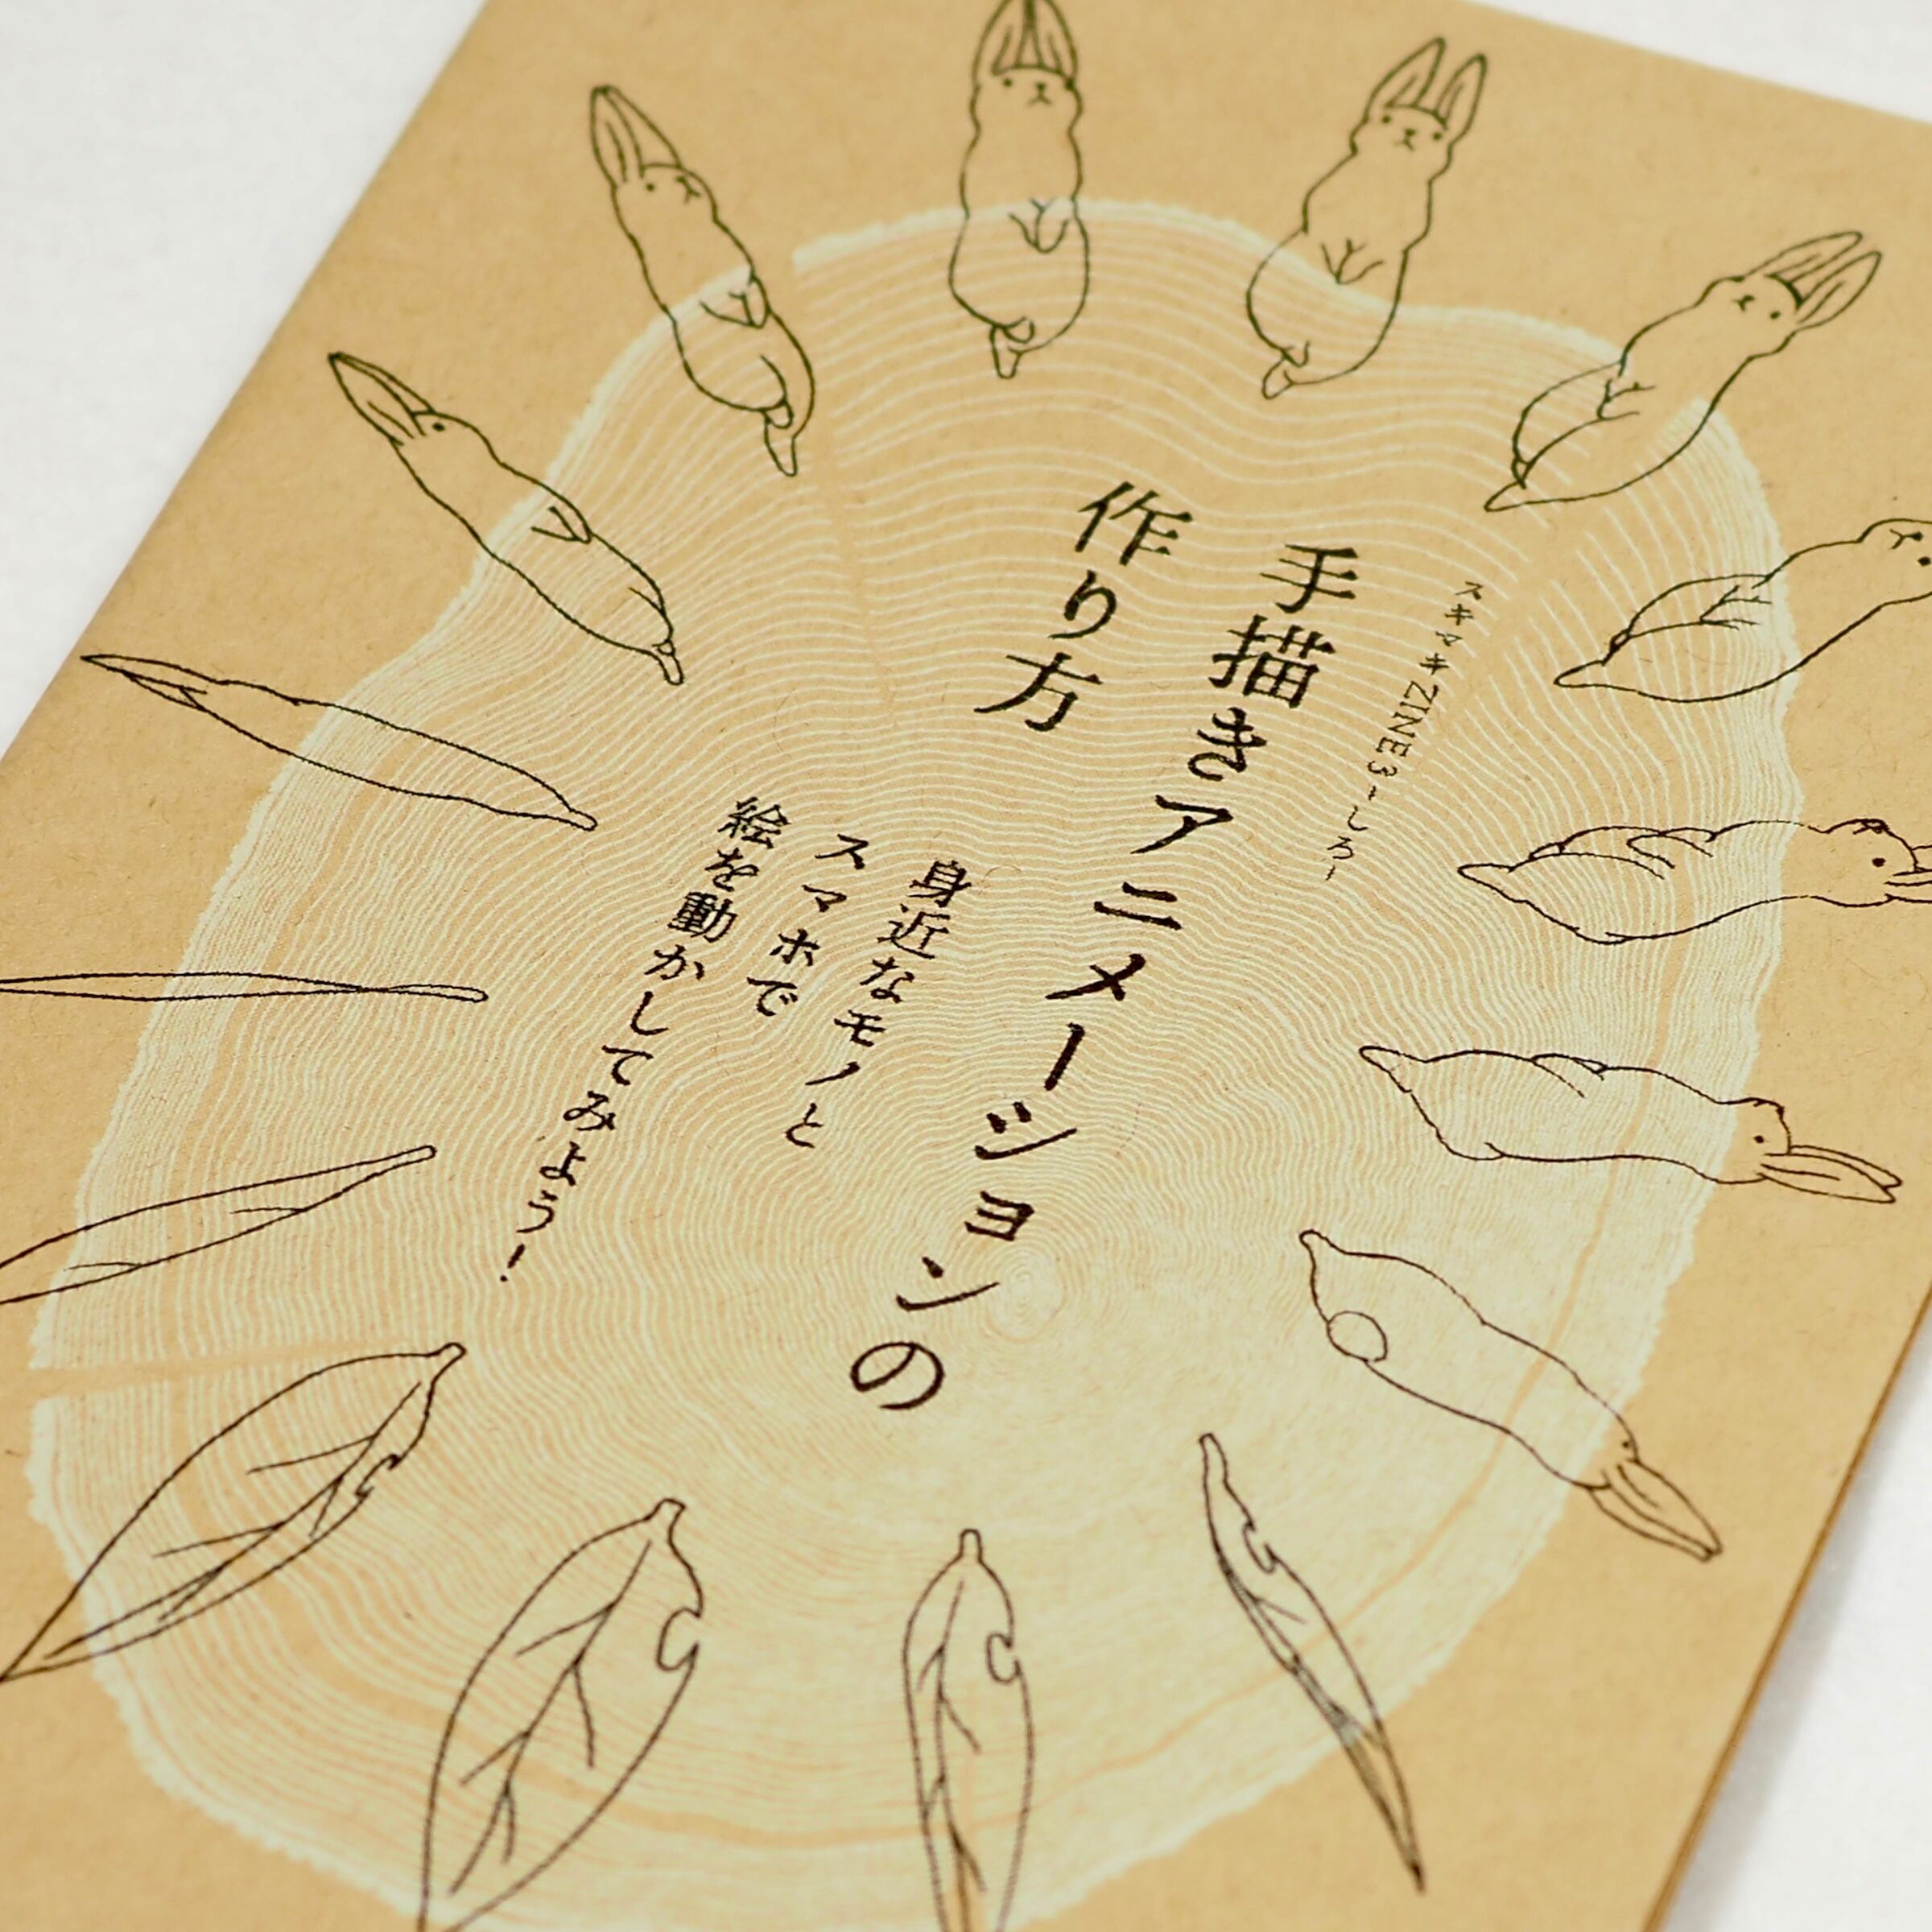 スキマキZINE3~しろ~
手描きアニメーションの
作り方
身近なモノと
スマホで
絵を動かしてみよう!